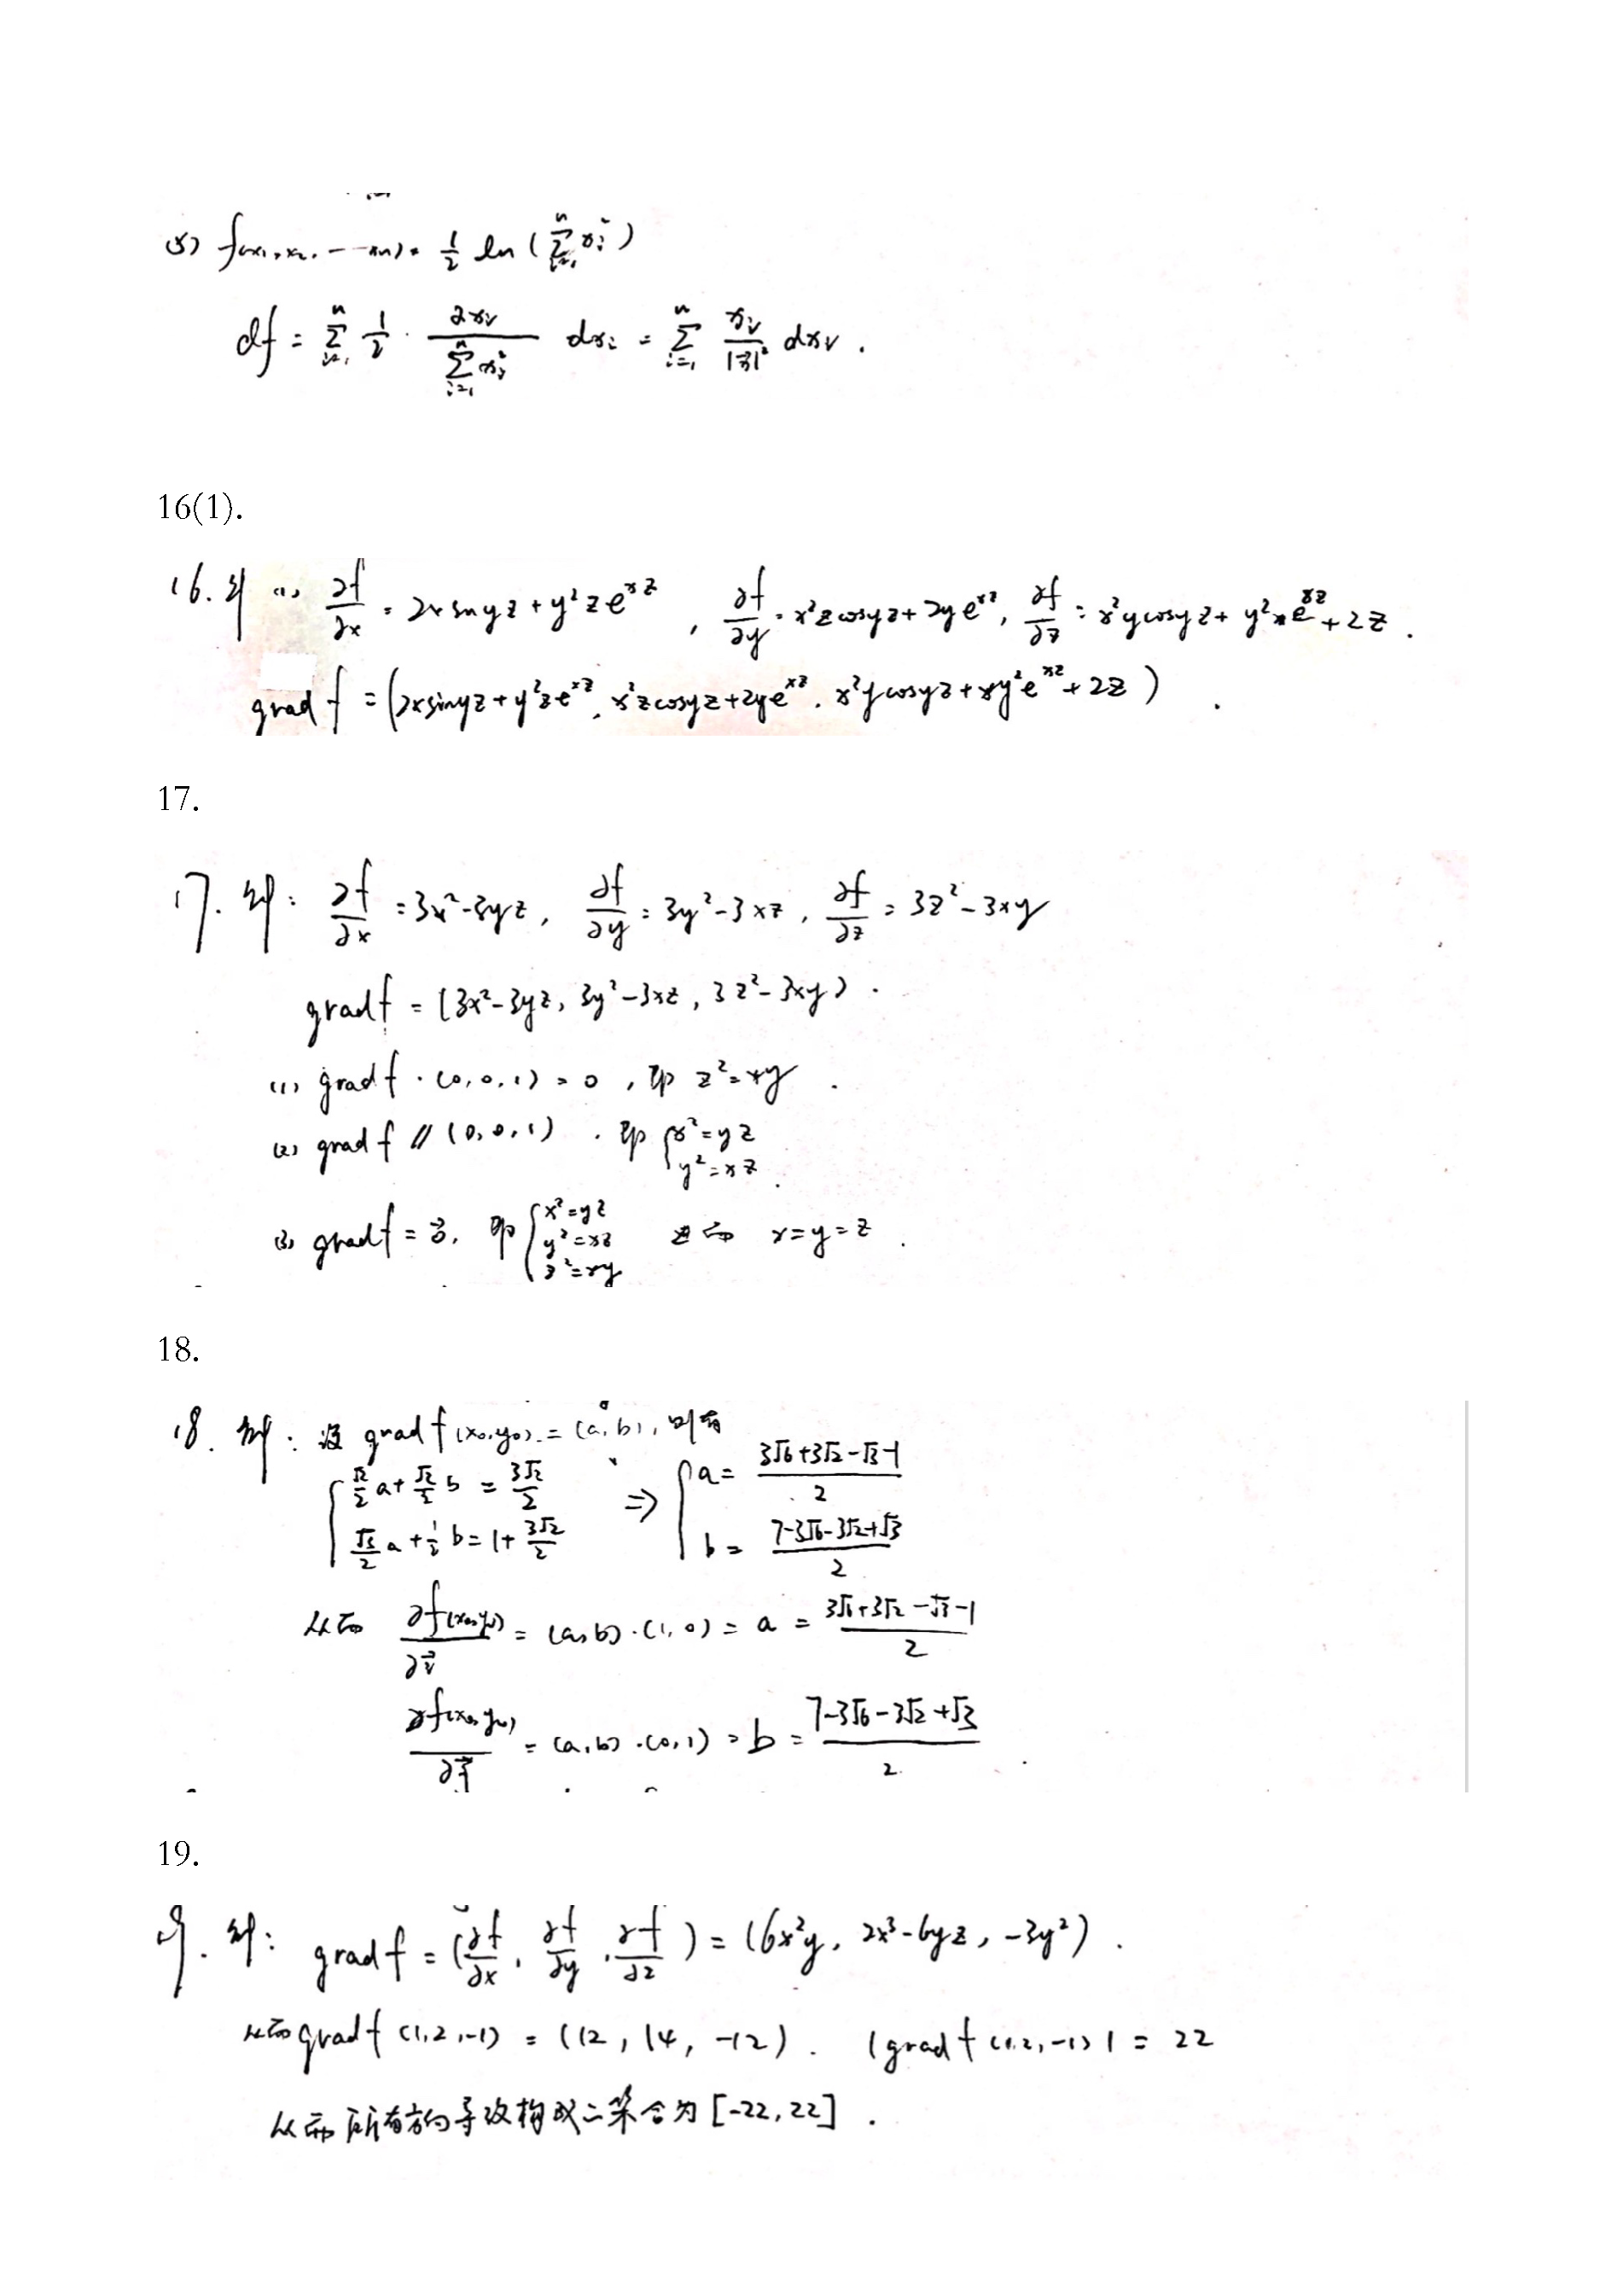 (5) f(x₁,x₂,⋯xₙ)= 1/2 ln(∑_{i=1}^n xᵢ²)
df = ∑_{i=1}^n 1/2 · 2xᵢ/(∑_{i=1}^n xᵢ²) dxᵢ = ∑_{i=1}^n xᵢ/|x⃗|² dxᵢ .
16(1).
16.解 (1) ∂f/∂x = 2x sin yz + y²ze^{xz} , ∂f/∂y = x²z cosyz + 2ye^{xz} , ∂f/∂z = x²y cosyz + y²xe^{xz} + 2z .
grad f = (2x sinyz + y²ze^{xz}, x²z cosyz + 2ye^{xz}, x²y cosyz + xy²e^{xz} + 2z) .
17.
17. 解: ∂f/∂x = 3x²-3yz , ∂f/∂y = 3y²-3xz , ∂f/∂z = 3z²-3xy
grad f = (3x²-3yz, 3y²-3xz, 3z²-3xy) .
(1) grad f · (0,0,1) = 0 , 即 z²=xy .
(2) grad f // (0,0,1) . 即 {x²=yz
y²=xz .
(3) grad f = 0⃗. 即 {x²=yz
y²=xz 从而 x=y=z .
z²=xy
18.
18. 解: 设 grad f(x₀,y₀) = (a,b), 则有
{√2/2 a + √2/2 b = 3√2/2 ⇒ {a = (3√6+3√2-√3-1)/2
√3/2 a + 1/2 b = 1 + 3√2/2 b = (7-3√6-3√2+√3)/2
从而 ∂f(x₀,y₀)/∂i⃗ = (a,b)·(1,0) = a = (3√6+3√2-√3-1)/2
∂f(x₀,y₀)/∂j⃗ = (a,b)·(0,1) = b = (7-3√6-3√2+√3)/2 .
19.
19. 解: grad f = (∂f/∂x, ∂f/∂y, ∂f/∂z) = (6x²y, 2x³-6yz, -3y²) .
从而 grad f (1,2,-1) = (12, 14, -12) . |grad f (1,2,-1)| = 22
从而所有方向导数构成之集合为 [-22,22] .